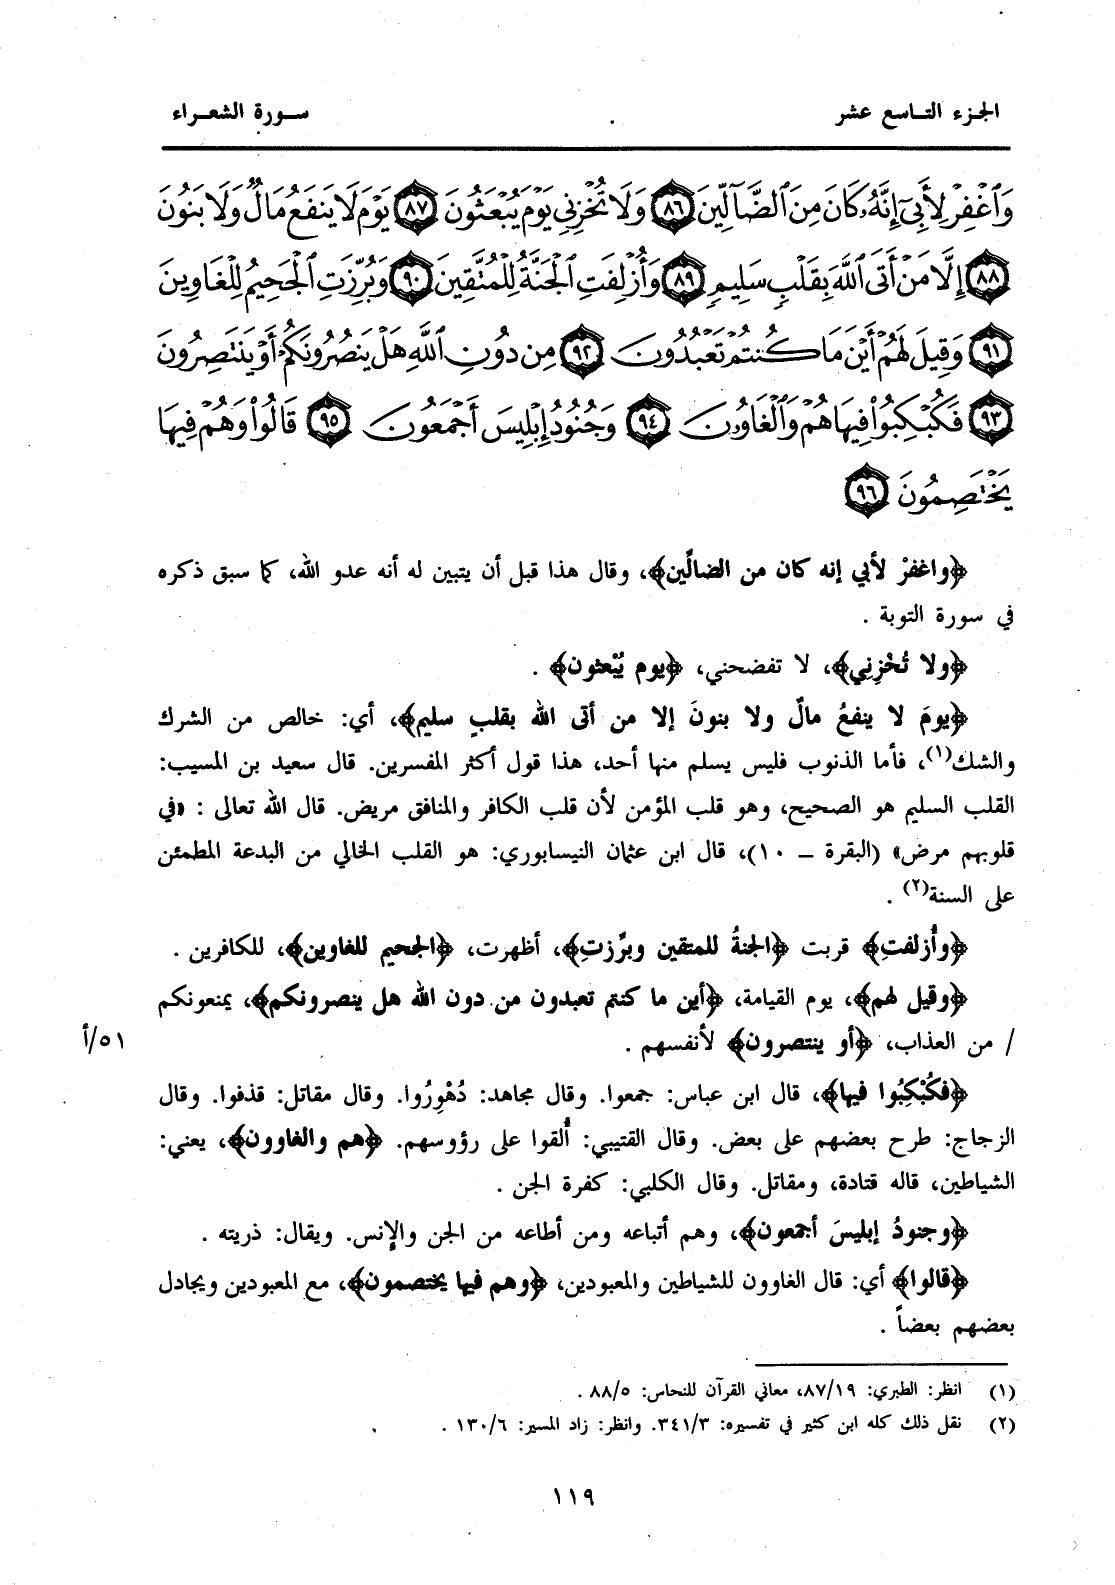 الجزء التاسع عشر
سورة الشعراء
وَٱغْفِرْ لِأَبِىٓ إِنَّهُۥ كَانَ مِنَ ٱلضَّآلِّينَ ٨٦ وَلَا تُخْزِنِى يَوْمَ يُبْعَثُونَ ٨٧ يَوْمَ لَا يَنفَعُ مَالٌ وَلَا بَنُونَ
٨٨ إِلَّا مَنْ أَتَى ٱللَّهَ بِقَلْبٍ سَلِيمٍ ٨٩ وَأُزْلِفَتِ ٱلْجَنَّةُ لِلْمُتَّقِينَ ٩٠ وَبُرِّزَتِ ٱلْجَحِيمُ لِلْغَاوِينَ
٩١ وَقِيلَ لَهُمْ أَيْنَ مَا كُنتُمْ تَعْبُدُونَ ٩٢ مِن دُونِ ٱللَّهِ هَلْ يَنصُرُونَكُمْ أَوْ يَنتَصِرُونَ
٩٣ فَكُبْكِبُوا۟ فِيهَا هُمْ وَٱلْغَاوُۥنَ ٩٤ وَجُنُودُ إِبْلِيسَ أَجْمَعُونَ ٩٥ قَالُوا۟ وَهُمْ فِيهَا
يَخْتَصِمُونَ ٩٦
﴿واغفرْ لأبي إنه كان من الضالّين﴾، وقال هذا قبل أن يتبين له أنه عدو الله، كما سبق ذكره
في سورة التوبة .
﴿ولا تُخْزِنِي﴾، لا تفضحني، ﴿يوم يُبْعثون﴾ .
﴿يومَ لا ينفعُ مالٌ ولا بنونَ إلا من أتى الله بقلبٍ سليم﴾، أي: خالص من الشرك
والشك(١)، فأما الذنوب فليس يسلم منها أحد، هذا قول أكثر المفسرين. قال سعيد بن المسيب:
القلب السليم هو الصحيح، وهو قلب المؤمن لأن قلب الكافر والمنافق مريض. قال الله تعالى : «في
قلوبهم مرض» (البقرة – ١٠)، قال ابن عثمان النيسابوري: هو القلب الخالي من البدعة المطمئن
على السنة(٢) .
﴿وأُزلفتِ﴾ قربت ﴿الجنةُ للمتقين وبرِّزتِ﴾، أظهرت، ﴿الجحيم للغاوين﴾، للكافرين .
﴿وقيل لهم﴾، يوم القيامة، ﴿أين ما كنتم تعبدون من دون الله هل ينصرونكم﴾، يمنعونكم
/ من العذاب، ﴿أو ينتصرون﴾ لأنفسهم .
٥١/أ
﴿فكُبْكِبُوا فيها﴾، قال ابن عباس: جمعوا. وقال مجاهد: دُهْوِرُوا. وقال مقاتل: قذفوا. وقال
الزجاج: طرح بعضهم على بعض. وقال القتيبي: أُلقوا على رؤوسهم. ﴿هم والغاوون﴾، يعني:
الشياطين، قاله قتادة، ومقاتل. وقال الكلبي: كفرة الجن .
﴿وجنودُ إبليسَ أجمعون﴾، وهم أتباعه ومن أطاعه من الجن والإنس. ويقال: ذريته .
﴿قالوا﴾ أي: قال الغاوون للشياطين والمعبودين، ﴿وهم فيها يختصمون﴾، مع المعبودين ويجادل
بعضهم بعضاً .
(١) انظر: الطبري: ٨٧/١٩، معاني القرآن للنحاس: ٨٨/٥ .
(٢) نقل ذلك كله ابن كثير في تفسيره: ٣٤١/٣. وانظر: زاد المسير: ١٣٠/٦ .
١١٩